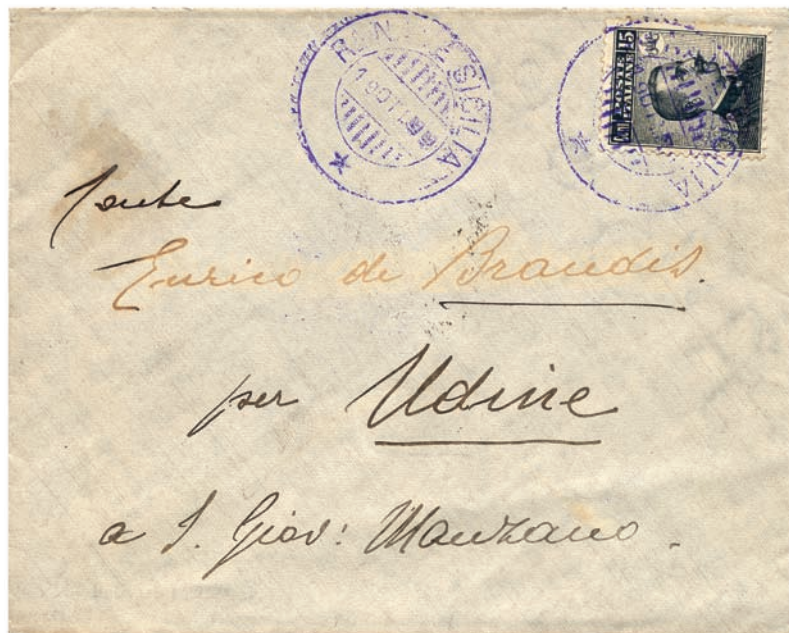 R. NAVE SICILIA
15
POSTE
ITALIANE
SICILIA
Conte
Enrico de Brandis.
per Udine
a S. Giov: Manzano.